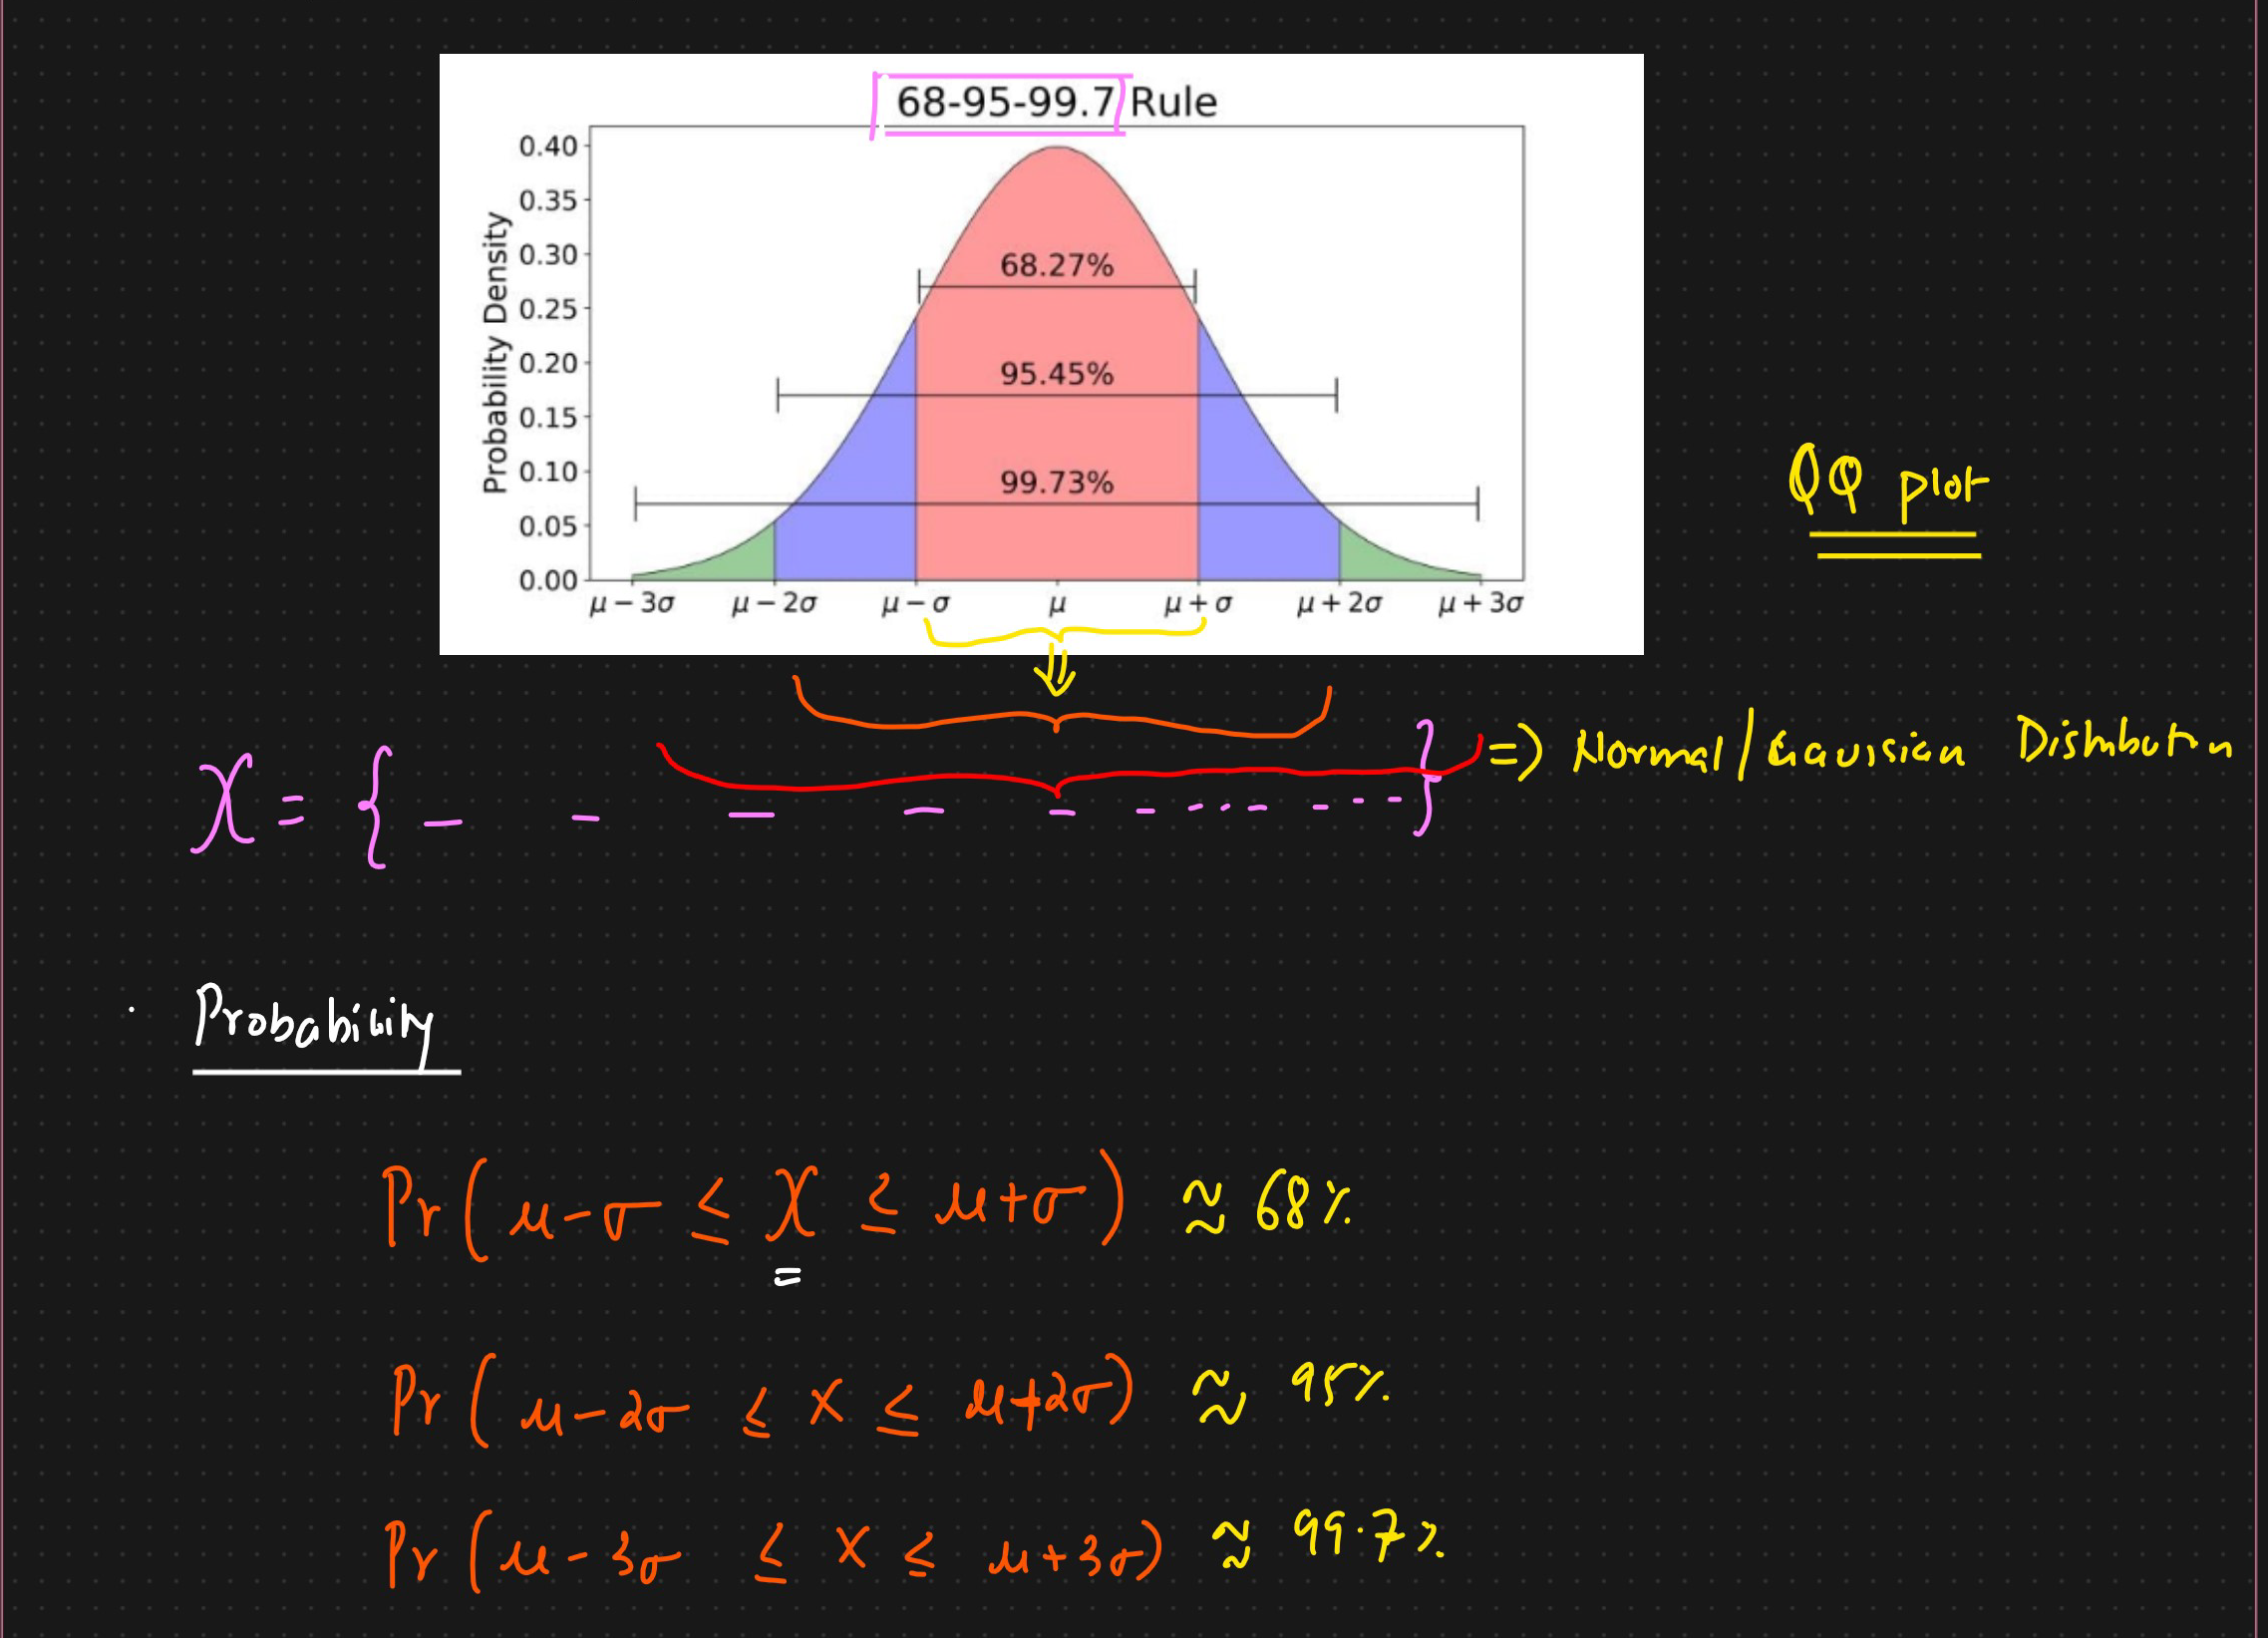 68-95-99.7 Rule
Probability Density
0.40
0.35
0.30
0.25
0.20
0.15
0.10
0.05
0.00
68.27%
95.45%
99.73%
μ − 3σ μ − 2σ μ − σ μ μ + σ μ + 2σ μ + 3σ
QQ plot
X = { _ _ _ _ _ - - - - - - - } => Normal / Gaussian Distribution
Probability
Pr ( μ - σ ≤ X ≤ μ + σ ) ≈ 68%
=
Pr ( μ - 2σ ≤ X ≤ μ + 2σ ) ≈ 95%
Pr ( μ - 3σ ≤ X ≤ μ + 3σ ) ≈ 99.7%